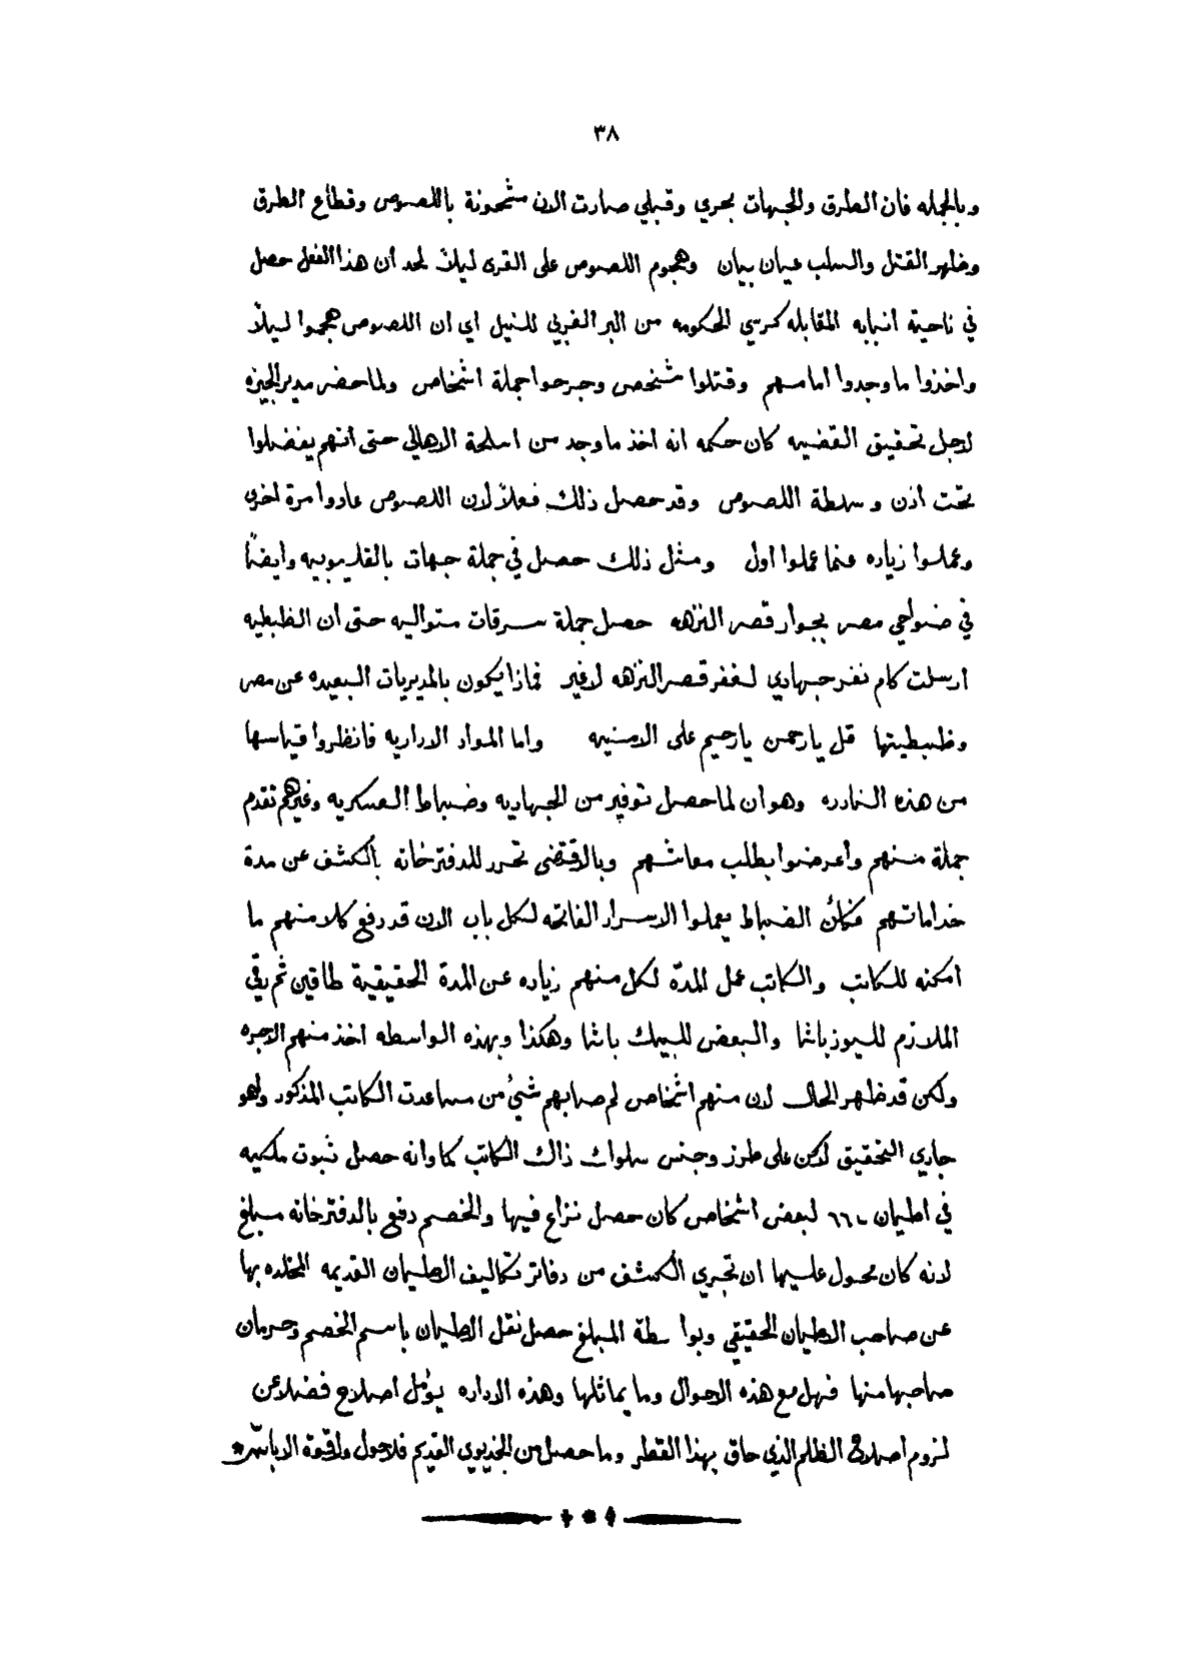 ٣٨
وبالجمله فان الطرق والجهات بحري وقبلي صارت الان مشحونة باللصوص وقطاع الطرق
وظهر القتل والسلب عيان بيان وهجوم اللصوص على القرى ليلاً لحد ان هذا الفعل حصل
في ناحيته انبابه المقابله كرسي الحكومه من البر الغربي للنيل اي ان اللصوص هجموا ليلاً
واخذوا ما وجدوا امامهم وقتلوا شخص وجرحوا جملة اشخاص ولما حضر مدير الجيزه
لاجل تحقيق القضيه كان حكمه انه اخذ ما وجد من اسلحة الاهالي حتى انهم يفضلوا
تحت اذن وسلطة اللصوص وقد حصل ذلك فعلاً لان اللصوص عادوا مرة اخرى
وعملوا زياده عنما عملوا اول ومثل ذلك حصل في جملة جهات بالقليوبيه وايضاً
في ضواحي مصر بجوار قصر النزهه حصل جملة سرقات متواليه حتى ان الظبطيه
ارسلت كام نفر جهادي لغفر قصر النزهه لا غير فماذا يكون بالمديريات البعيده عن مصر
وظبطيتها قل يا رحمن يا رحيم على الامنيه واما المواد الاداريه فانظروا قياسها
من هذه النادره وهو ان لما حصل توفير من الجهاديه وضباط العسكريه وغيرهم تقدم
جملة منهم وأعرضوا بطلب معاشهم وبالاقتضى تحرر للدفترخانه بالكشف عن مدة
خداماتهم فكان الضباط يعملوا الاسرار الفاتحه لكل باب الان قد دفع كلا منهم ما
امكنه للكاتب والكاتب عمل المدة لكل منهم زياده عن المدة الحقيقية طاقين ثم بقي
الملازم لليوزباشا والبعض للبيك باشا وهكذا وبهذه الواسطه اخذ منهم الاجره
ولكن قد ظهر الحال لان منهم اشخاص لم صابهم شيء من مساعدت الكاتب المذكور ولهو
جاري التحقيق لكن على طرز وجنس سلوك ذاك الكاتب كما وانه حصل ثبوت ملكيه
في اطيان ٦٦٠ لبعض اشخاص كان حصل نزاع فيها والخصم دفع بالدفترخانه مبلغ
لانه كان محول عليها ان تجري الكشف من دفاتر تكاليف الاطيان القديمه المخلده بها
عن صاحب الاطيان الحقيقي وبواسطة المبلغ حصل نقل الاطيان باسم الخصم وحرمان
صاحبها منها فهل مع هذه الاحوال وما يماثلها وهذه الاداره يؤمل اصلاح فضلا عن
لزوم اصلاح الظلم الذي حاق بهذا القطر وما حصل من الخديوي القديم فلا حول ولا قوة الا بالله *